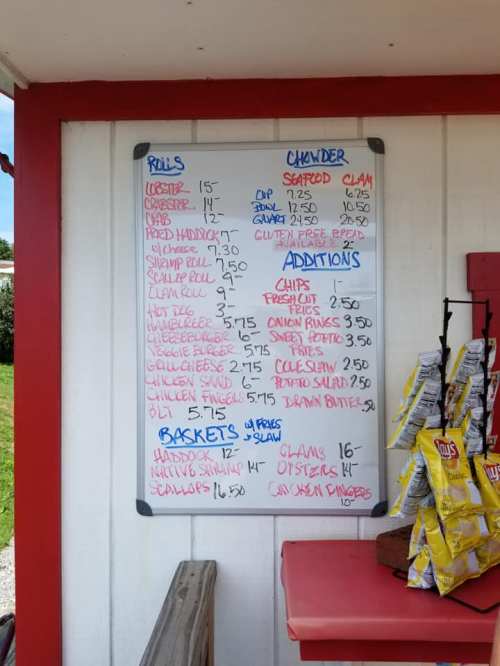 ROLLS
LOBSTER 15-
CRABSTER 14-
CRAB 12-
FRIED HADDOCK 7-
w/ cheese 7.30
SHRIMP ROLL 7.50
SCALLOP ROLL 9-
CLAM ROLL 9-
HOT DOG 3-
HAMBURGER 5.75
CHEESEBURGER 6-
VEGGIE BURGER 5.75
GRILL CHEESE 2.75
CHICKEN SAND 6-
CHICKEN FINGERS 5.75
BLT 5.75
CHOWDER
SEAFOOD CLAM
CUP 7.25 6.25
BOWL 12.50 10.50
QUART 24.50 20.50
GLUTEN FREE BREAD
AVAILABLE 2-
ADDITIONS
CHIPS 1-
FRESH CUT FRIES 2.50
ONION RINGS 3.50
SWEET POTATO FRIES 3.50
COLESLAW 2.50
POTATO SALAD 2.50
DRAWN BUTTER .50
BASKETS w/ FRIES + SLAW
HADDOCK 12-
NATIVE SHRIMP 14-
SCALLOPS 16.50
CLAMS 16-
OYSTERS 14-
CHICKEN FINGERS
10-
Lay's
Lay's